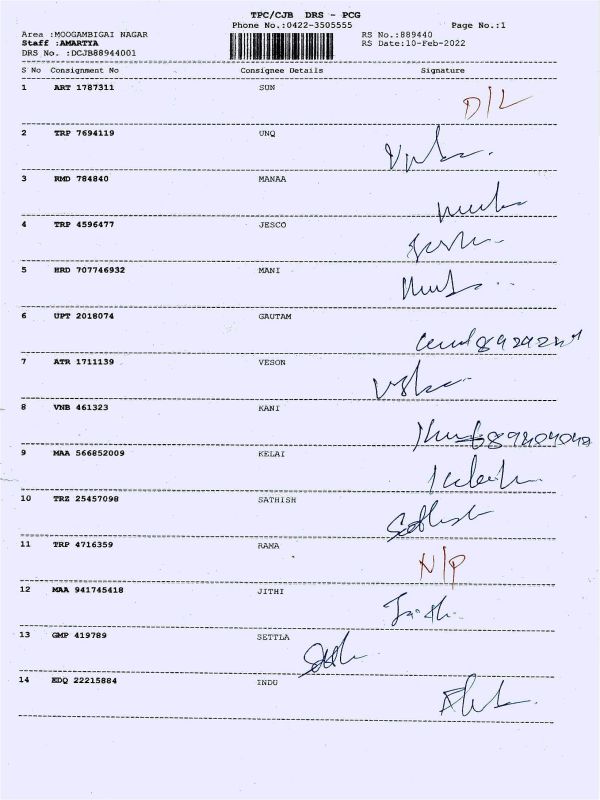 TPC/CJB DRS - PCG
Phone No.:0422-3505555 Page No.:1
Area :MOOGAMBIGAI NAGAR RS No.:889440
Staff :AMARTYA RS Date:10-Feb-2022
DRS No. :DCJB88944001
S No Consignment No Consignee Details Signature
1 ART 1787311 SUN D/L
2 TRP 7694119 UNQ
3 RMD 784840 MANAA
4 TRP 4596477 JESCO
5 HRD 707746932 MANI
6 UPT 2018074 GAUTAM
7 ATR 1711139 VESON
8 VNB 461323 KANI
9 MAA 566852009 KELAI
10 TRZ 25457098 SATHISH Sathish
11 TRP 4716359 RAMA N/P
12 MAA 941745418 JITHI
13 GMP 419789 SETTLA
14 EDQ 22215884 INDU